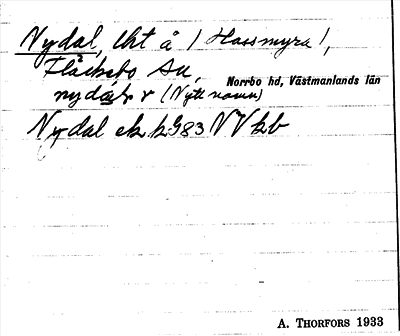 Nydal, lht å / Hassmyra /,
Fläckebo sn,
Norrbo hd, Västmanlands län
nydɑ̀ɩ̀ r (Nytt namn)
Nydal ek bl 983 NV kb
A. THORFORS 1933